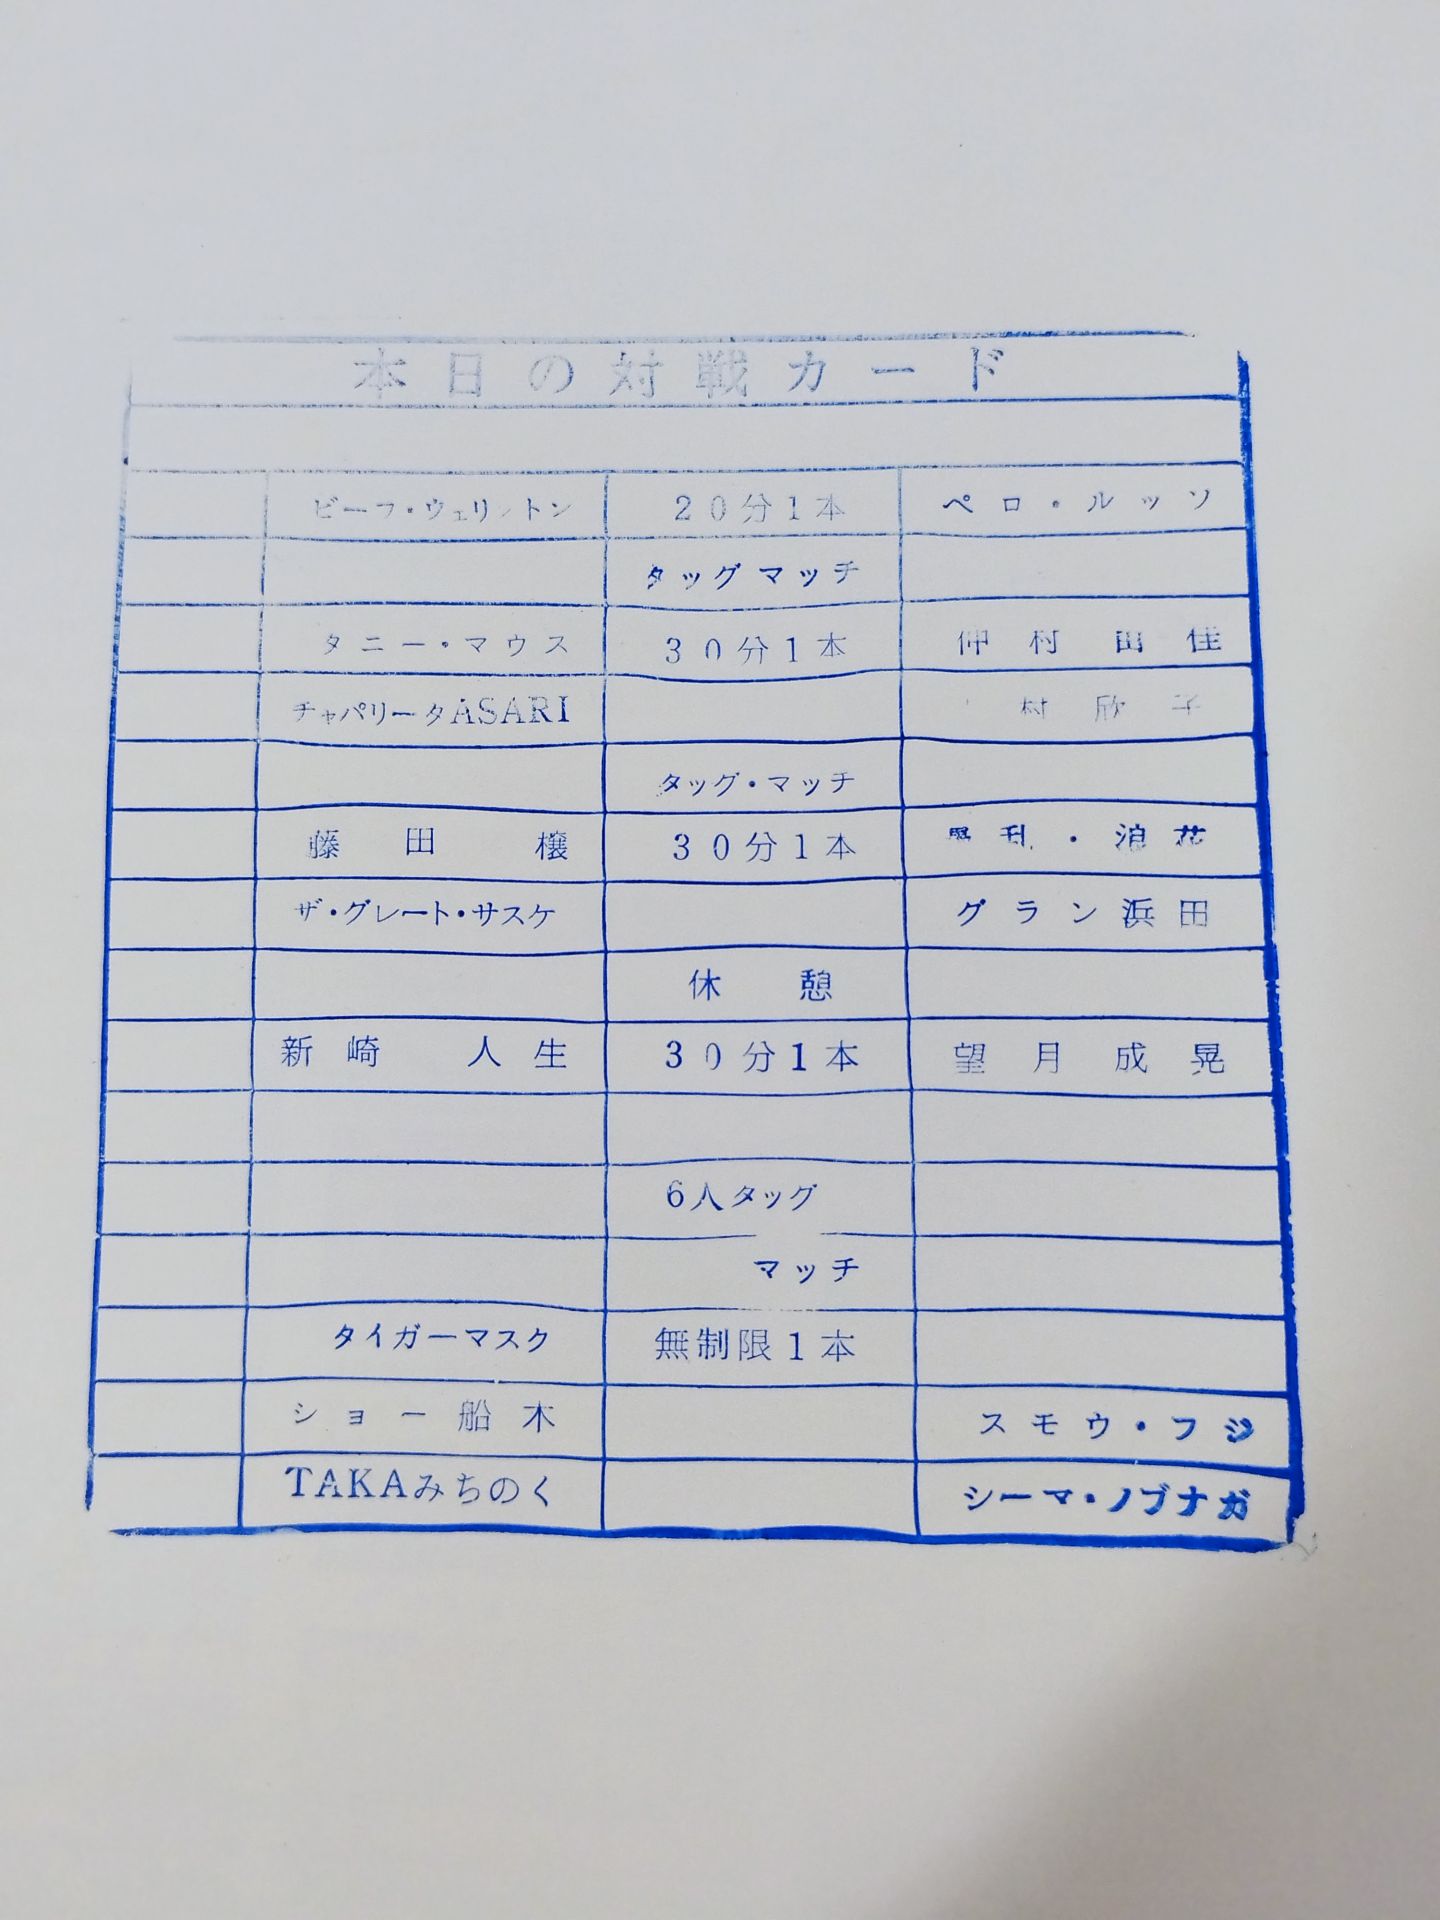 本日の対戦カード
ビーフ・ウェリントン 20分1本 ペロ・ルッソ
タッグマッチ
タニー・マウス 30分1本 仲村由佳
チャパリータASARI 村欣子
タッグ・マッチ
藤田穣 30分1本 愚乱・浪花
ザ・グレート・サスケ グラン浜田
休憩
新崎人生 30分1本 望月成晃
6人タッグ
マッチ
タイガーマスク 無制限1本
ショー船木 スモウ・フジ
TAKAみちのく シーマ・ノブナガ